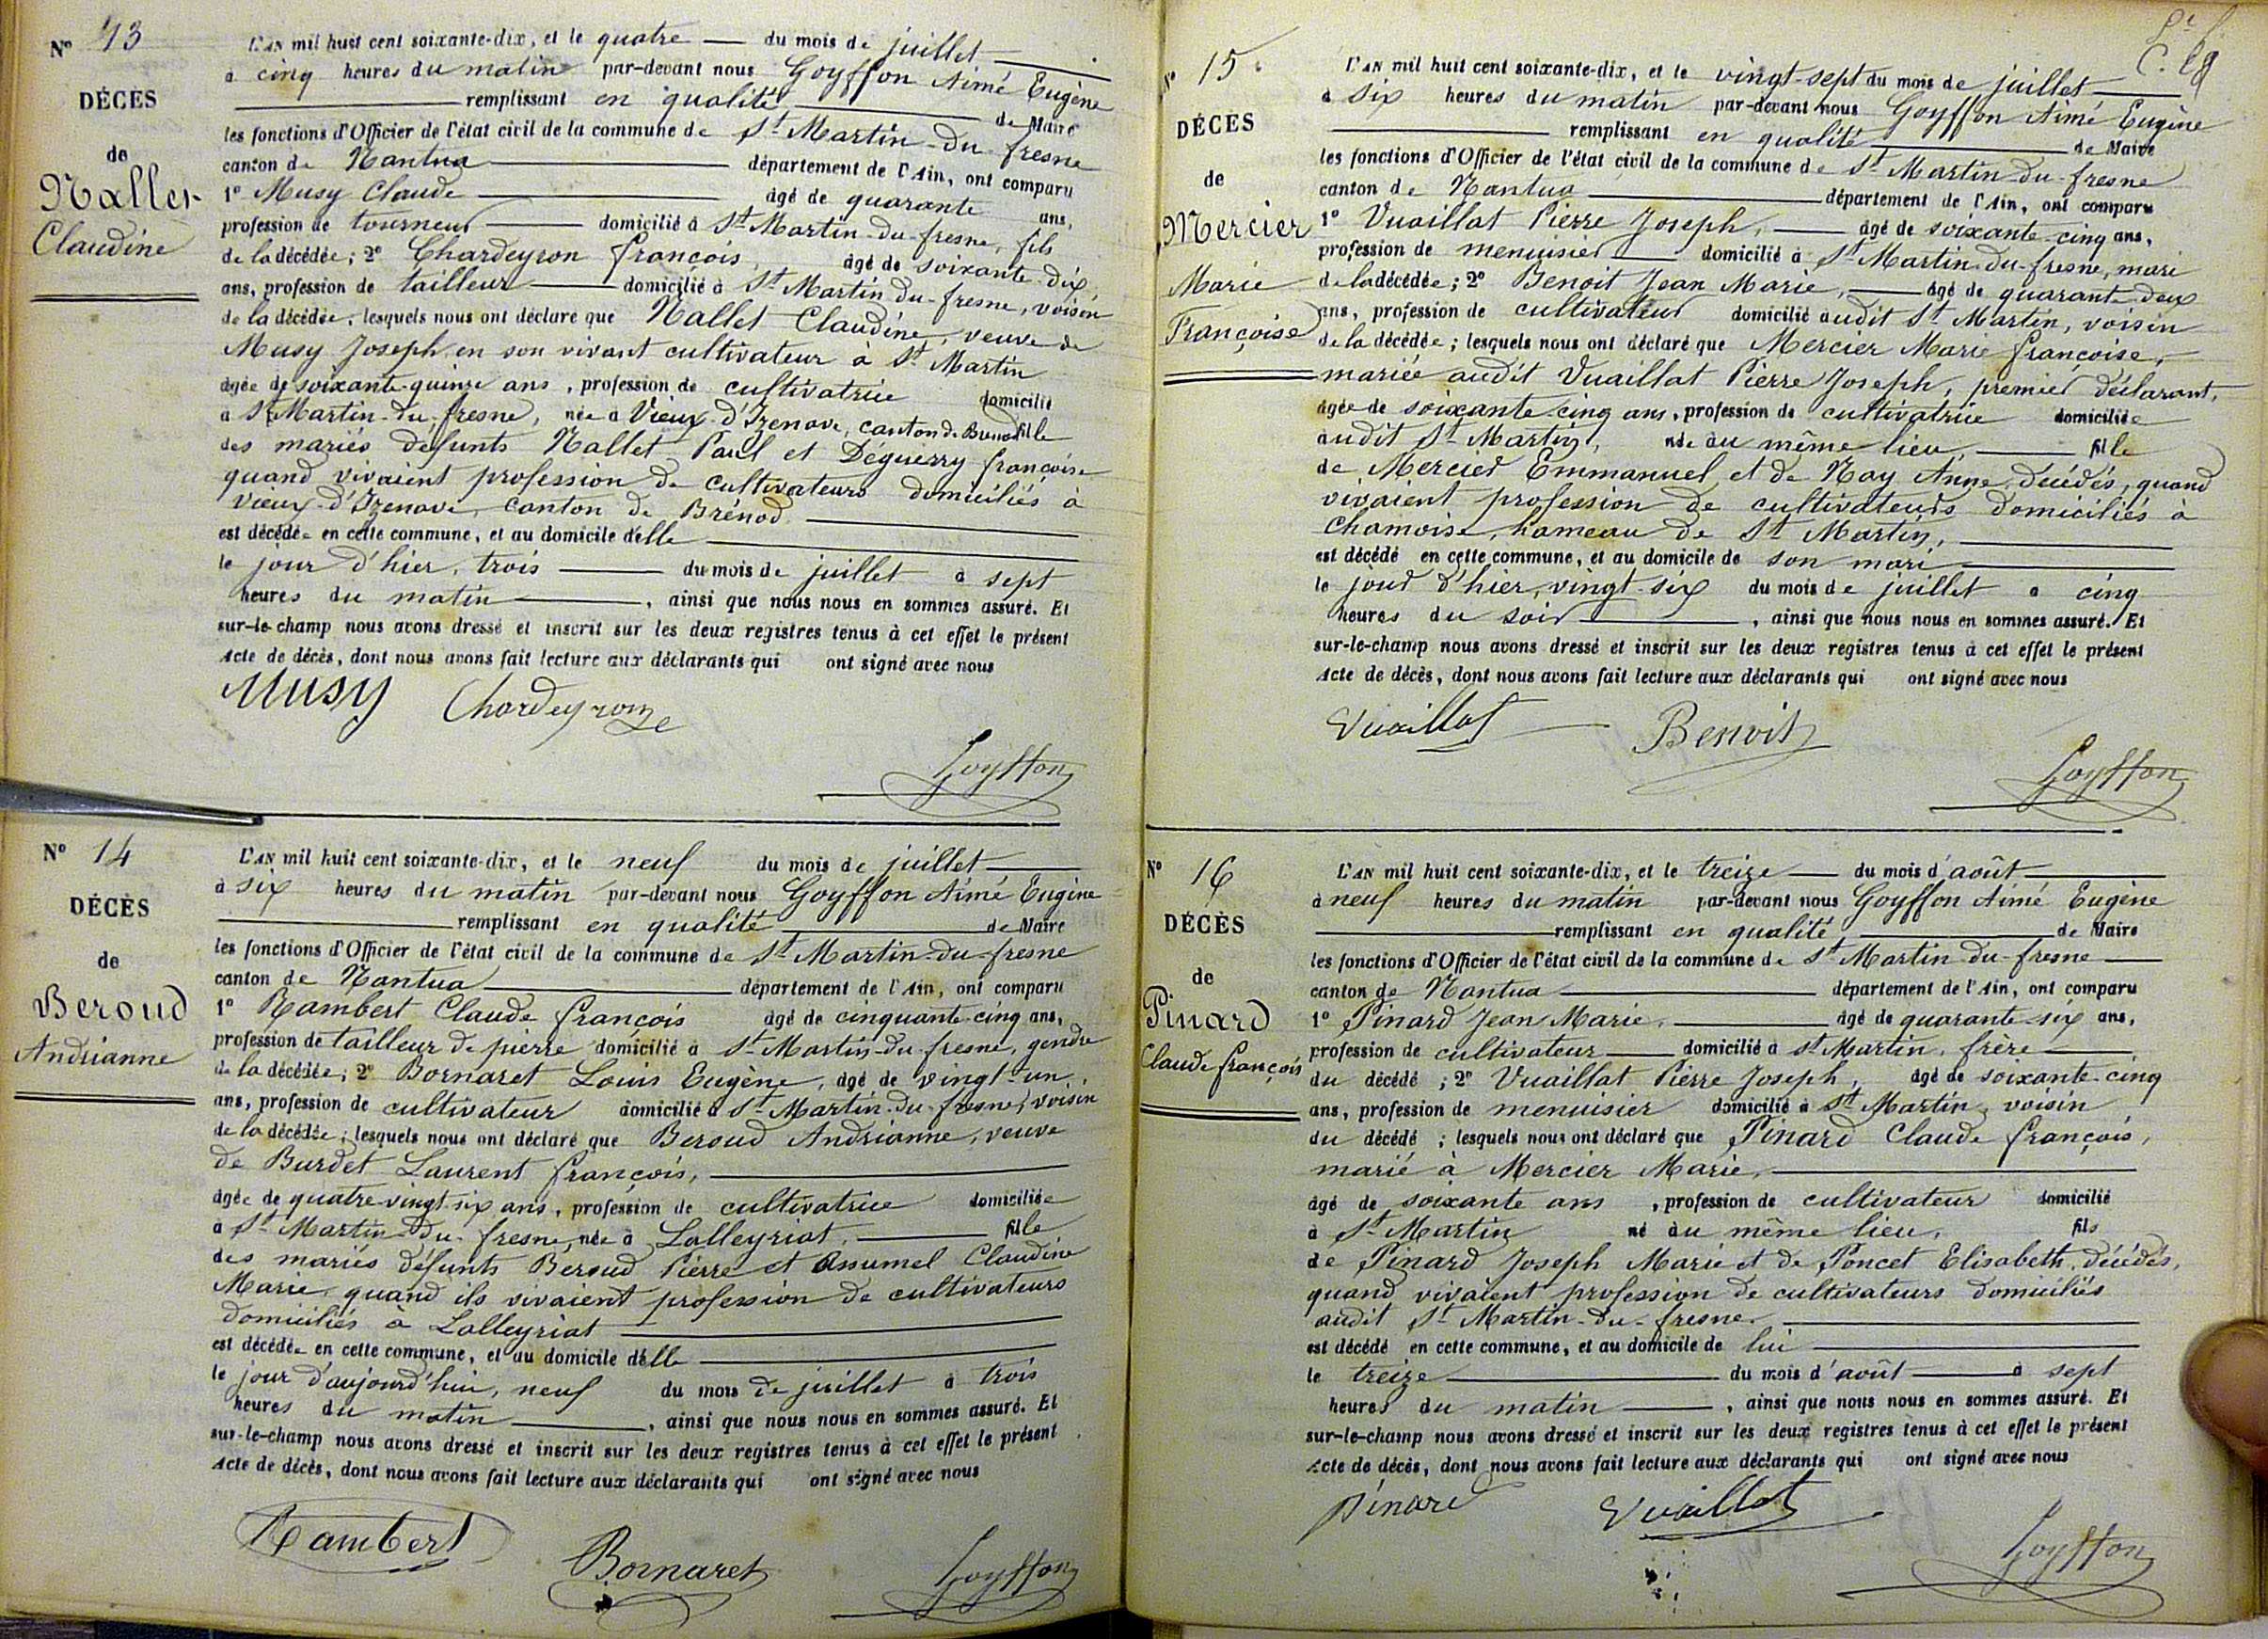 N° 13
DÉCÈS
de
Nallet
Claudine
L'AN mil huit cent soixante-dix, et le quatre du mois de juillet
à cinq heures du matin par-devant nous Goyffon Aimé Eugène
remplissant en qualité de Maire
les fonctions d'Officier de l'état civil de la commune de St Martin-du-fresne
canton de Nantua département de l'Ain, ont comparu
1° Musy Claude âgé de quarante ans,
profession de tourneur domicilié à St Martin-du-fresne, fils
de la décédée ; 2° Chardeyron françois, âgé de soixante-dix
ans, profession de tailleur domicilié à St Martin du-fresne, voisin
de la décédée, lesquels nous ont déclaré que Nallet Claudine, veuve de
Musy Joseph, en son vivant cultivateur à St Martin
âgée de soixante-quinze ans, profession de cultivatrice domicilié
à St Martin-du-fresne, née à Vieux-d'Izenave, canton de Brenod fille
des mariés défunts Nallet Paul et Deguerry françoise
quand vivaient profession de cultivateurs domiciliés à
Vieux-d'Izenave, canton de Brénod.
est décédée en cette commune, et au domicile d'elle
le jour d'hier, trois du mois de juillet à sept
heures du matin, ainsi que nous nous en sommes assuré. Et
sur-le-champ nous avons dressé et inscrit sur les deux registres tenus à cet effet le présent
Acte de décès, dont nous avons fait lecture aux déclarants qui ont signé avec nous
Musy Chardeyron
Goyffon
N° 14
DÉCÈS
de
Beroud
Andrianne
L'AN mil huit cent soixante-dix, et le neuf du mois de juillet
à six heures du matin par-devant nous Goyffon Aimé Eugène
remplissant en qualité de Maire
les fonctions d'Officier de l'état civil de la commune de St Martin-du-fresne
canton de Nantua département de l'Ain, ont comparu
1° Rambert Claude françois âgé de cinquante-cinq ans,
profession de tailleur de pierre domicilié à St Martin-du-fresne, gendre
de la décédée ; 2° Bornaret Louis Eugène, âgé de vingt-un,
ans, profession de cultivateur domicilié à St Martin-du-fresne, voisin
de la décédée ; lesquels nous ont déclaré que Beroud Andrianne, veuve
de Burdet Laurent françois,
âgée de quatre-vingt-six ans, profession de cultivatrice domiciliée
à St Martin-du-fresne, née à Lalleyriat, fille
des mariés défunts Beroud Pierre et Assumel Claudine
Marie, quand ils vivaient profession de cultivateurs
domiciliés à Lalleyriat
est décédée en cette commune, et au domicile d'elle
le jour d'aujourd'hui, neuf du mois de juillet à trois
heures du matin, ainsi que nous nous en sommes assuré. Et
sur-le-champ nous avons dressé et inscrit sur les deux registres tenus à cet effet le présent
Acte de décès, dont nous avons fait lecture aux déclarants qui ont signé avec nous
Rambert
Bornaret Goyffon
N° 15
DÉCÈS
de
Mercier
Marie
Françoise
L'AN mil huit cent soixante-dix, et le vingt-sept du mois de juillet
à six heures du matin par-devant nous Goyffon Aimé Eugène
remplissant en qualité de Maire
les fonctions d'Officier de l'état civil de la commune de St Martin-du-fresne
canton de Nantua département de l'Ain, ont comparu
1° Vuaillat Pierre Joseph, âgé de soixante-cinq ans,
profession de menuisier domicilié à St Martin-du-fresne, mari
de la décédée ; 2° Benoit Jean Marie, âgé de quarante-deux
ans, profession de cultivateur domicilié audit St Martin, voisin
de la décédée ; lesquels nous ont déclaré que Mercier Marie françoise,
mariée audit Vuaillat Pierre Joseph, premier déclarant,
âgée de soixante cinq ans, profession de cultivatrice domiciliée
audit St Martin, née au même lieu, fille
de Mercier Emmanuel et de Nay Anne, décédés, quand
vivaient profession de cultivateurs domiciliés à
Chamoise, hameau de St Martin,
est décédé en cette commune, et au domicile de son mari
le jour d'hier, vingt-six du mois de juillet à cinq
heures du soir, ainsi que nous nous en sommes assuré. Et
sur-le-champ nous avons dressé et inscrit sur les deux registres tenus à cet effet le présent
Acte de décès, dont nous avons fait lecture aux déclarants qui ont signé avec nous
Vuaillat Benoit
Goyffon
N° 16
DÉCÈS
de
Pinard
Claude françois
L'AN mil huit cent soixante-dix, et le treize du mois d'août
à neuf heures du matin par-devant nous Goyffon Aimé Eugène
remplissant en qualité de Maire
les fonctions d'Officier de l'état civil de la commune de St Martin-du-fresne
canton de Nantua département de l'Ain, ont comparu
1° Pinard Jean Marie, âgé de quarante-six ans,
profession de cultivateur domicilié à St Martin, frère
du décédé ; 2° Vuaillat Pierre Joseph, âgé de soixante-cinq
ans, profession de menuisier domicilié à St Martin, voisin
du décédé ; lesquels nous ont déclaré que Pinard Claude françois,
marié à Mercier Marie,
âgé de soixante ans, profession de cultivateur domicilié
à St Martin né au même lieu, fils
de Pinard Joseph Marie et de Poncet Elisabeth, décédés,
quand vivaient profession de cultivateurs domiciliés
audit St Martin-du-fresne.
est décédé en cette commune, et au domicile de lui
le treize du mois d'août à sept
heures du matin, ainsi que nous nous en sommes assuré. Et
sur-le-champ nous avons dressé et inscrit sur les deux registres tenus à cet effet le présent
Acte de décès, dont nous avons fait lecture aux déclarants qui ont signé avec nous
Pinard Vuaillat
Goyffon